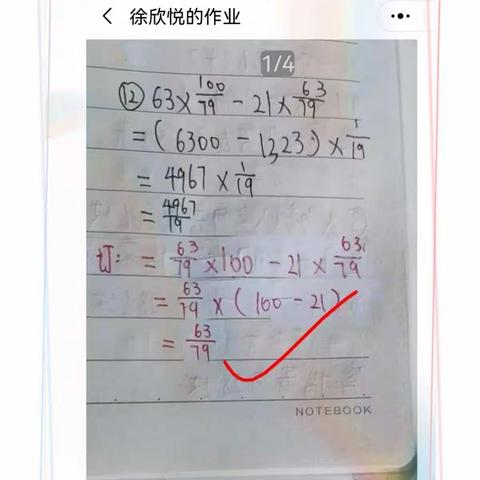 徐欣悦的作业
1/4
⑫ 63×100/79 - 21×63/79
=(6300 - 1323)×1/19
= 4967×1/19
= 4967/19
订: = 63/79×100 - 21×63/79
= 63/79×(100-21)
= 63/79
NOTEBOOK